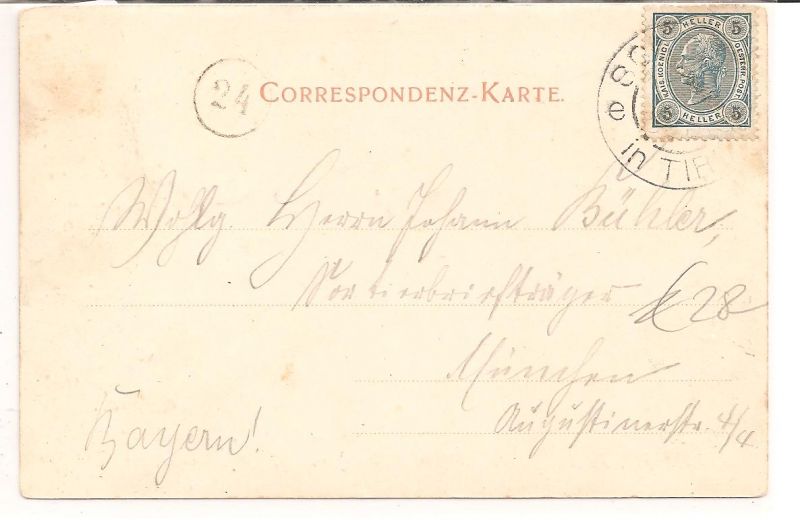 5 HELLER 5
KAIS. KOENIGL. OESTERR. POST.
5 HELLER 5
24
CORRESPONDENZ-KARTE.
in TIR
Wohlg. Herrn Johann Bühler,
Sortierbriefträger
28
München
Augustinerstr. 4/4
Bayern!